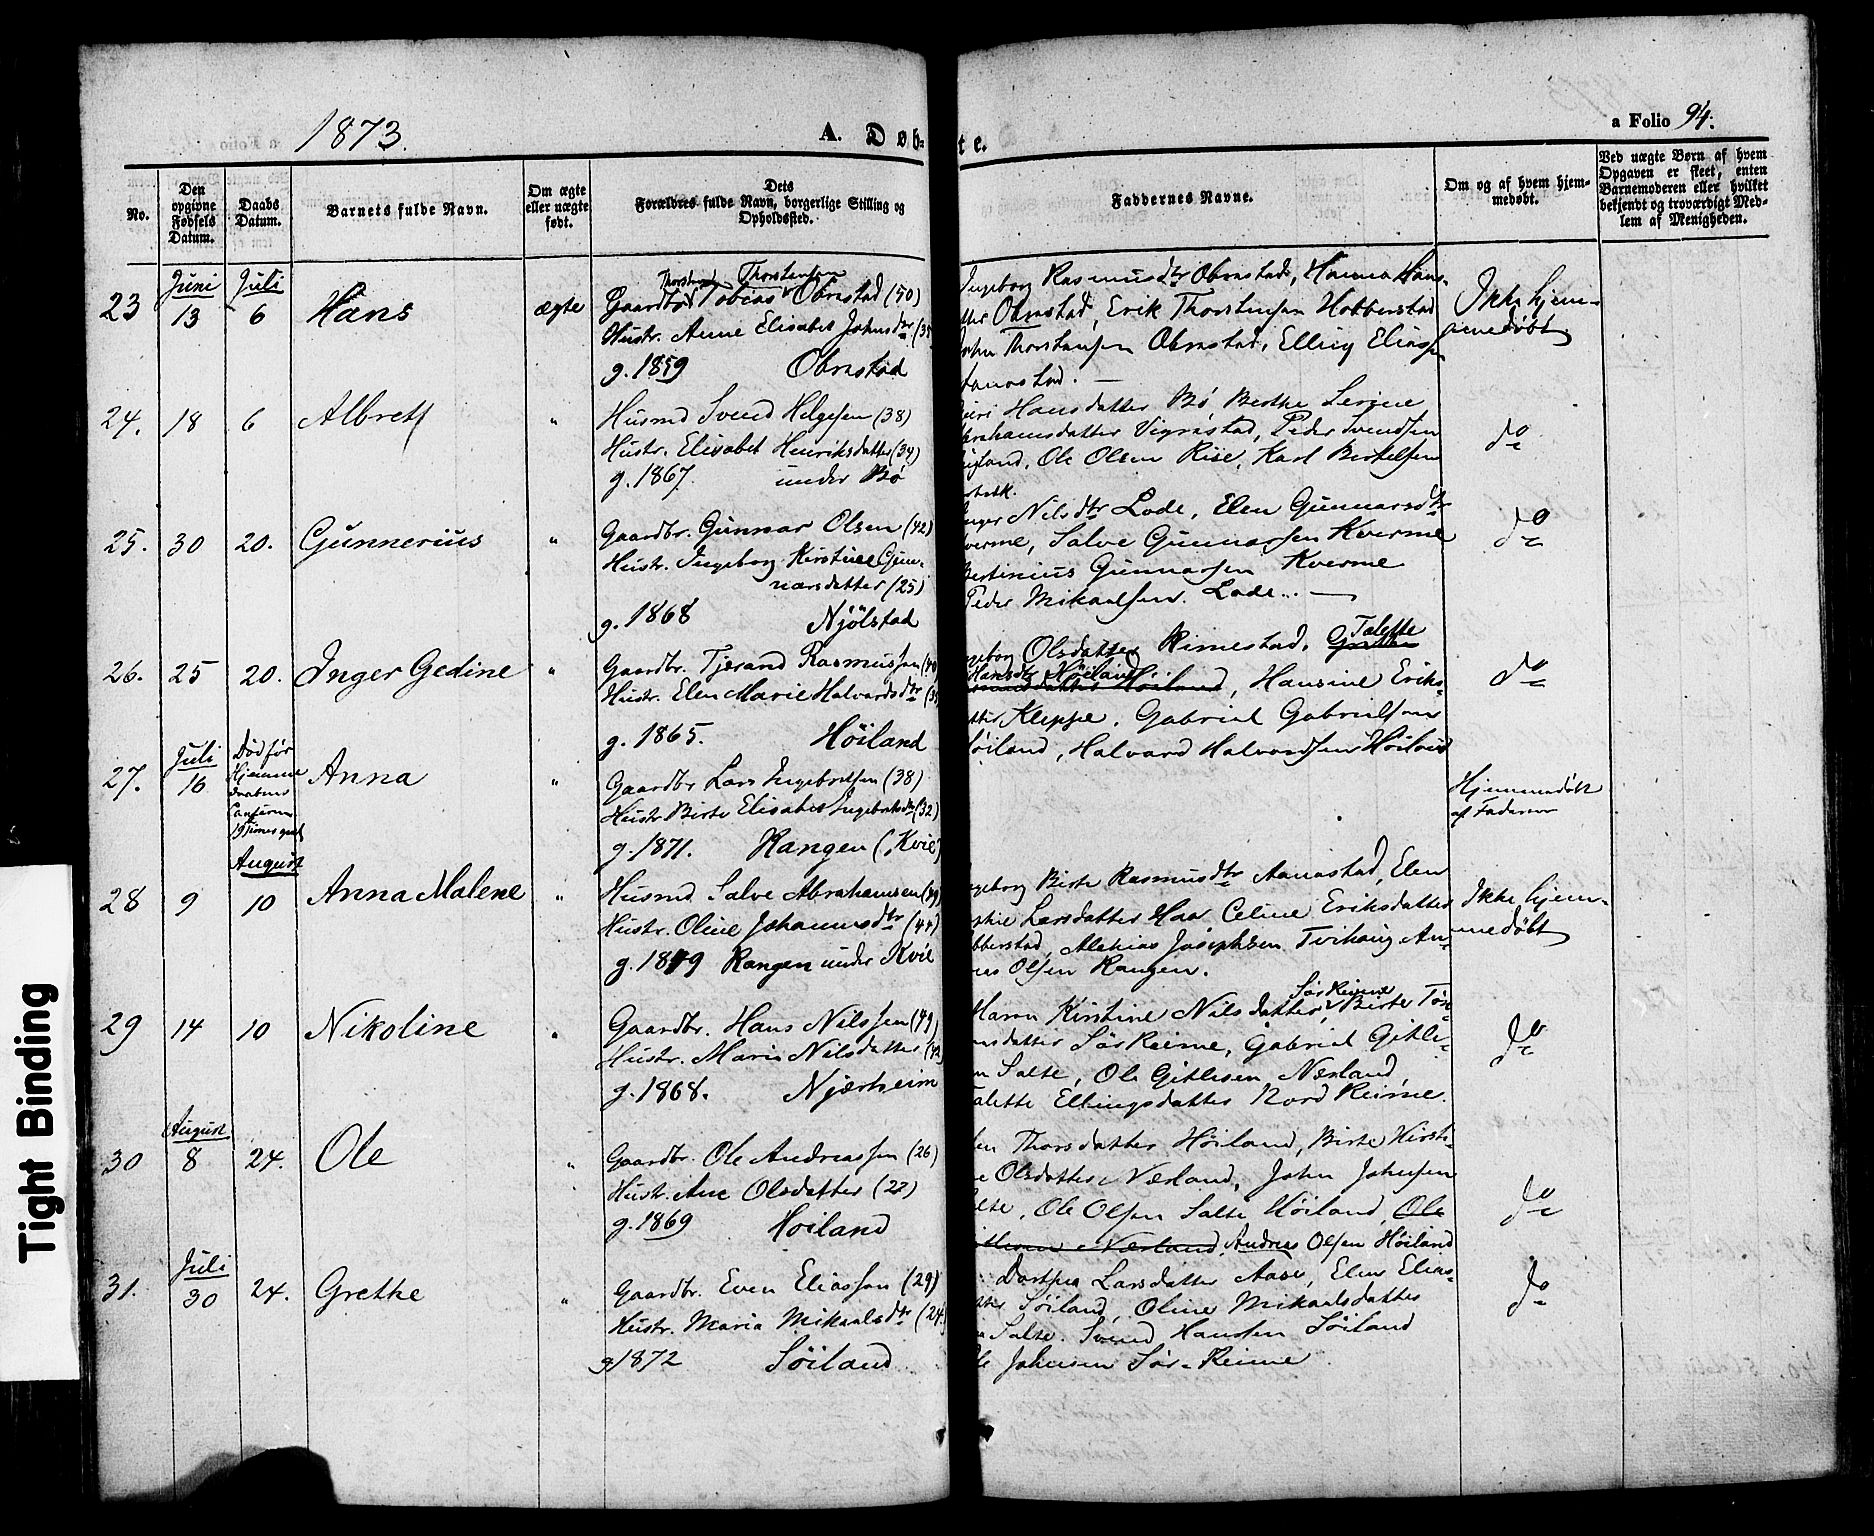 1873.
A. Døb-
te.
a Folio 94.
No.
Den opgivne Fødsels Datum.
Daabs Datum.
Barnets fulde Navn.
Om ægte eller uægte født.
Dets Forældres fulde Navn, borgerlige Stilling og Opholdssted.
Faddernes Navne.
Om og af hvem hjemmedøbt.
Ved uægte Børn af hvem Opgaven er skeet, enten Barnemoderen eller hvilket bekjendt og troværdigt Medlem af Menigheden.
Juni Juli
23 13 6 Hans ægte
Thorstensen
Gaardbr. Tobias Obrestad (50)
Hustr. Anne Elisabet Johnsdtr
g. 1859 Obrestad
Ingeborg Rasmusdtr Obrestad, Hanna Hans-
Obrestad, Erik Thorstensen Hobberstad
Thorstensen Obrestad, Elling Elias
Ikke hjem-
medøbt
24. 18 6 Albrett "
Husmd Svend Helgesen (38)
Hustr. Elisabet Henriksdatter (34)
g. 1867. under Bø
Hansdatter Bø Berthe Serine
Vigrestad, Peder Svendsen
Ole Olsen Rise, Karl Bertelsen
do
25. 30 20. Gunnerius "
Gaardbr. Gunnar Olsen (42)
Hustr. Ingeborg Kirstine Gun-
narsdatter (25)
g. 1868 Njølstad
Nilsdtr Lode, Elen Gunnarsdtr
Salve Gunnarsen Kverme
Bertinius Gunnarsen Kverme
Peder Mikaelsen Lode..
do
26. 25 20. Inger Gedine "
Gaardbr. Tjerand Rasmussen
Hustr. Elen Marie Halvardsdtr
g. 1865. Høiland
Olsdatter Rimestad, Talette
Hansdtr Høiland
Høiland, Hansine Eriks-
Kleppe, Gabriel Gabrielsen
Halvard Halvardsen Høiland
do
Juli
27. 16 Anna "
Død før
Hjemme
daabens
19 Timer gml
Gaardbr Lars Ingebretsen (38)
Hustr Birte Elisabet Ingebretsdtr (32)
g. 1871. Hangen (Kvie)
Hjemmedøbt
af Faderen
August
28 9 10 Anna Malene "
Husmd Salve Abrahamsen
Hustr. Oline Johannesdtr (44)
Rangen under Kvie
Birte Rasmusdtr Aanestad, Elen
Larsdatter Haar Celine Eriksdatter
Josephsen Tvihaug An-
Olsen Rangen.
Ikke hjem-
medøbt
29 14 10 Nikoline "
Gaardbr. Hans Nilssen (49)
Hustr. Maria Nilsdatter (42)
g. 1868. Njærheim
Sør Reime
Maren Kirstine Nilsdatter, Birte Tøn-
Sør Reime, Gabriel Gitle-
Salte, Ole Gitlesen Nærland,
Ellingsdatter Nord Reime.
do
August
30 8 24. Ole "
Gaardbr. Ole Andreassen (26)
Hustr. Ane Olsdatter (22)
g. 1869 Høiland
Thorsdatter Høiland, Birte Kirsti-
Olsdatter Nærland, John Johnsen
Ole Olsen Salte Høiland, Ole
Nærland, Andreas Olsen Høiland
do
Juli
31. 30 24. Grethe "
Gaardbr. Even Eliassen (29)
Hustr. Maria Mikaelsdtr (24)
g 1872 Søiland
Dorthea Larsdatter Aase, Elen Elias-
Søiland, Oline Mikaelsdatter
Salte. Svend Hansen Søiland
Johnsen Sør-Reime
do
Tight Binding